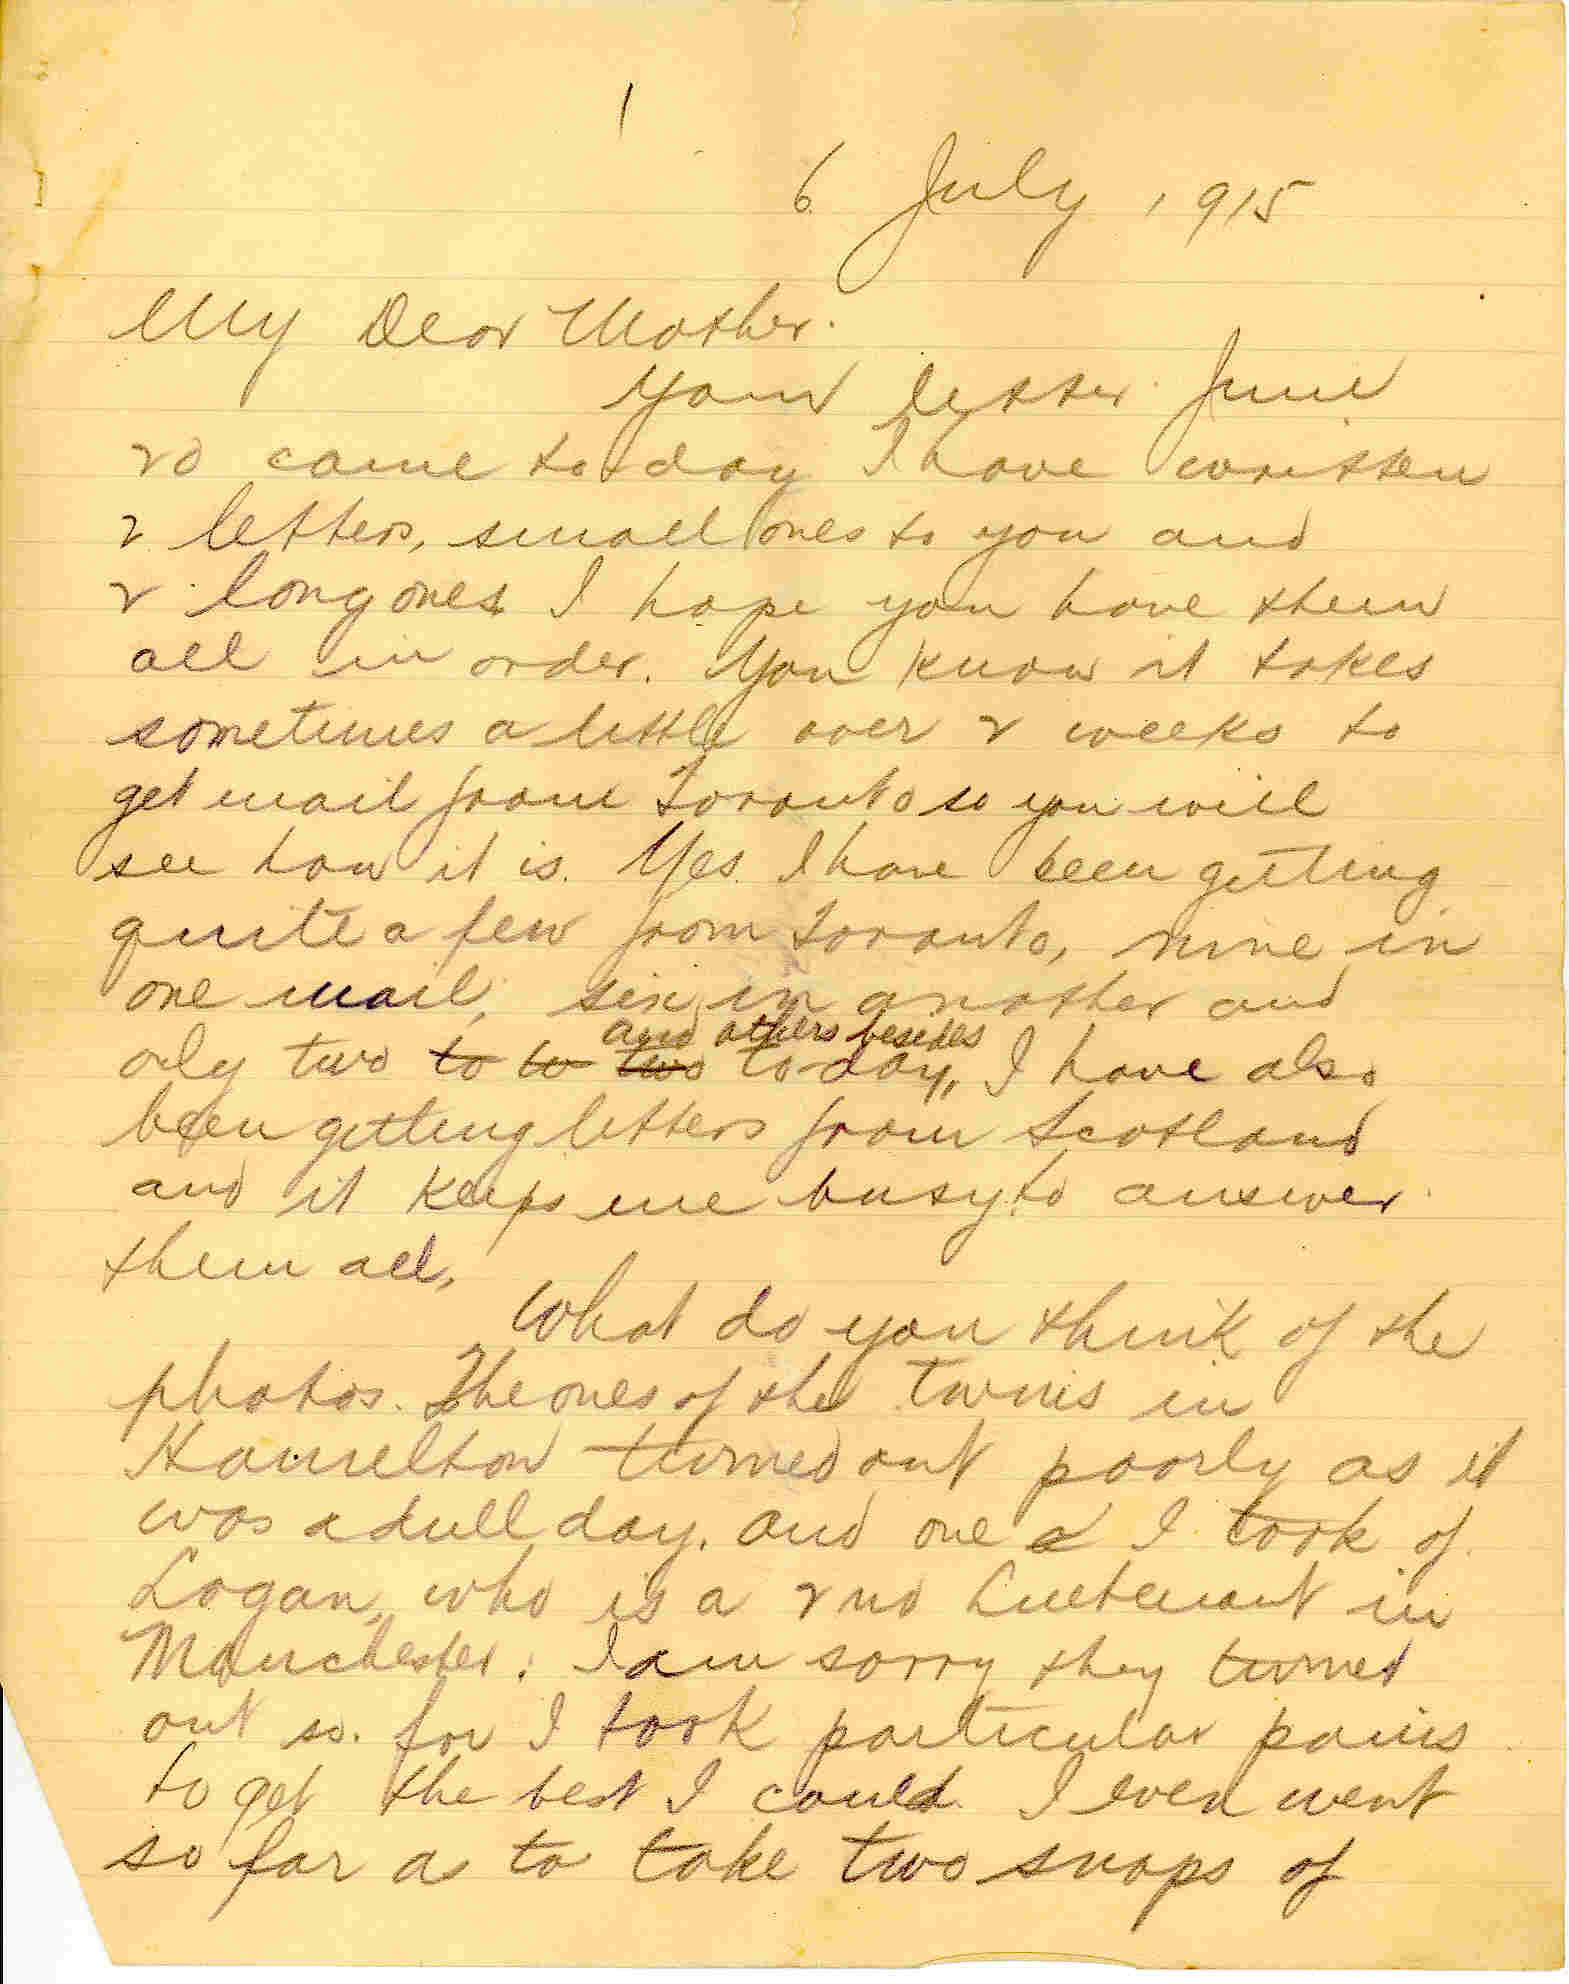 1
6 July 1915
My Dear Mother.
Your letter June
20 came to day I have written
2 letters, small ones to you and
2 long ones I hope you have them
all in order. You know it takes
sometimes a little over 2 weeks to
get mail from Toronto so you will
see how it is. Yes I have been getting
quite a few from Toronto, nine in
one mail, six in another and
and others besides
only two to to two to-day, I have also
been getting letters from Scotland
and it keeps me busy to answer
them all.
What do you think of the
photos. The ones of the twins in
Hamilton turned out poorly as it
was a dull day. and one I took of
Logan, who is a 2nd Lieutenant in
Manchester. I am sorry they turned
out so. for I took particular pains
to get the best I could I even went
so far as to take two snaps of